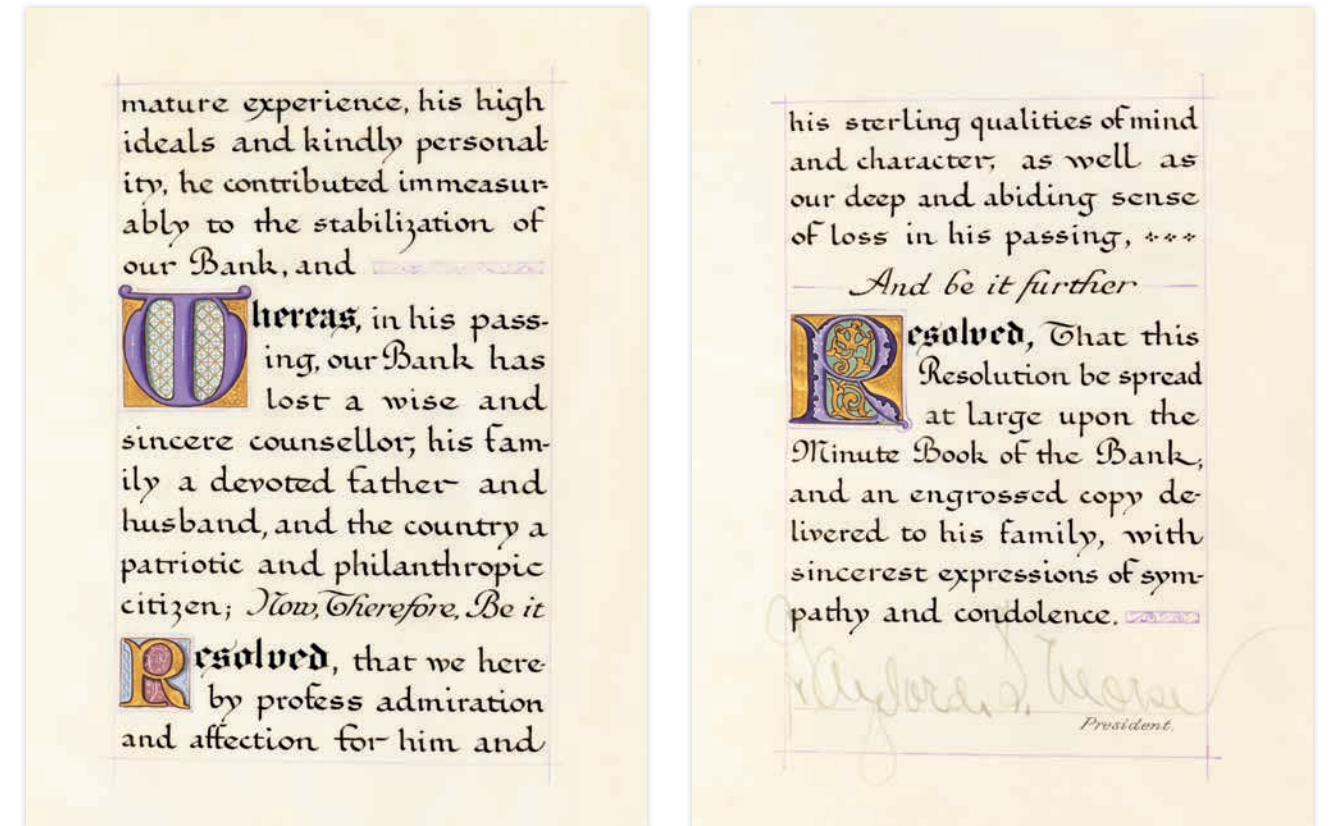 mature experience, his high
ideals and kindly personal-
ity, he contributed immeasur-
ably to the stabilization of
our Bank, and
Whereas, in his pass-
ing, our Bank has
lost a wise and
sincere counsellor, his fam-
ily a devoted father and
husband, and the country a
patriotic and philanthropic
citizen; Now, Therefore, Be it
Resolved, that we here-
by profess admiration
and affection for him and
his sterling qualities of mind
and character, as well as
our deep and abiding sense
of loss in his passing,
And be it further
Resolved, That this
Resolution be spread
at large upon the
Minute Book of the Bank,
and an engrossed copy de-
livered to his family, with
sincerest expressions of sym-
pathy and condolence.
President.